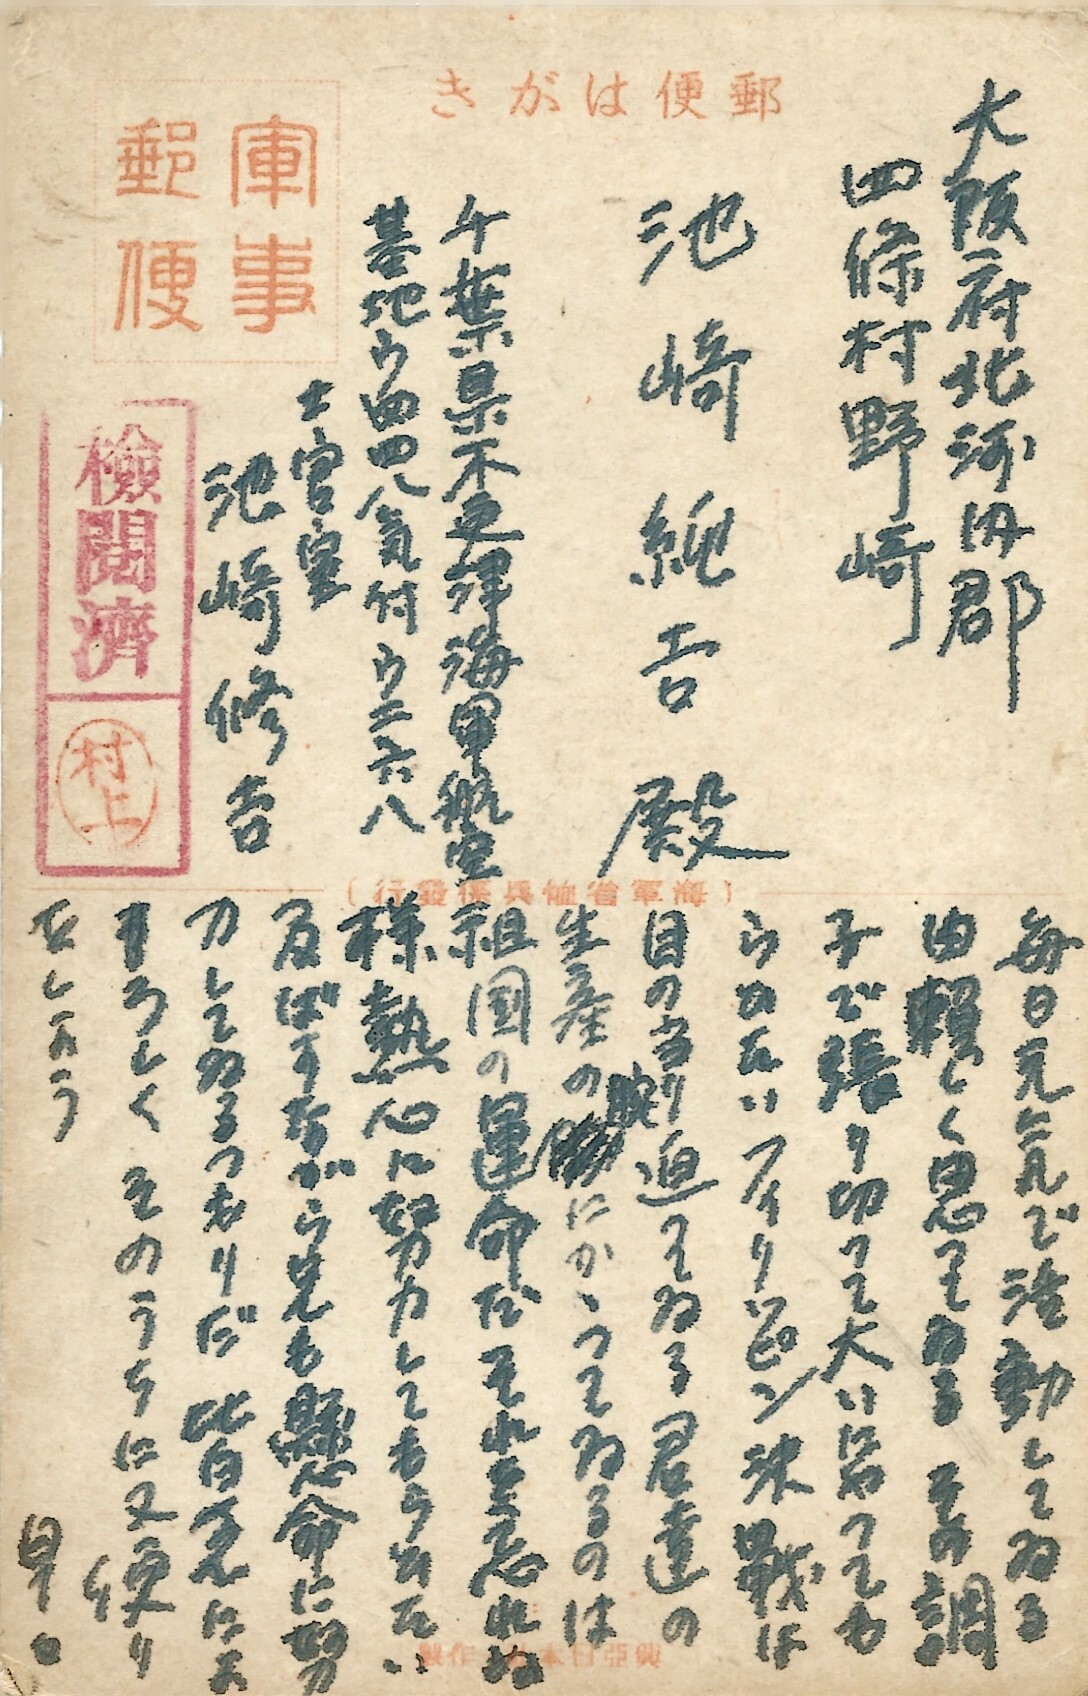 郵便はがき
軍事
郵便
大阪府北河内郡
四條村野崎
池崎縄吉殿
千葉県木更津海軍航空
基地ウ四四八気付ウ二六八
士官室
池崎修吉
檢閲濟
村上
(海軍省恤兵係發行)
毎日元気で活動してゐる
由賴しく思ってゐる その調
子で張り切って大いにやっても
らひたい フィリッピン決戦は
目の当り迫ってゐる君達の
生産の腕にかゝってゐるのは
祖国の運命だ それを忘れぬ
様熱心に努力してもらひたい
及ばずながら兄も懸命に努
力してゐるつもりだ 皆皆に
よろしく そのうちに又便り
をしよう
早々
興亞日本社作製